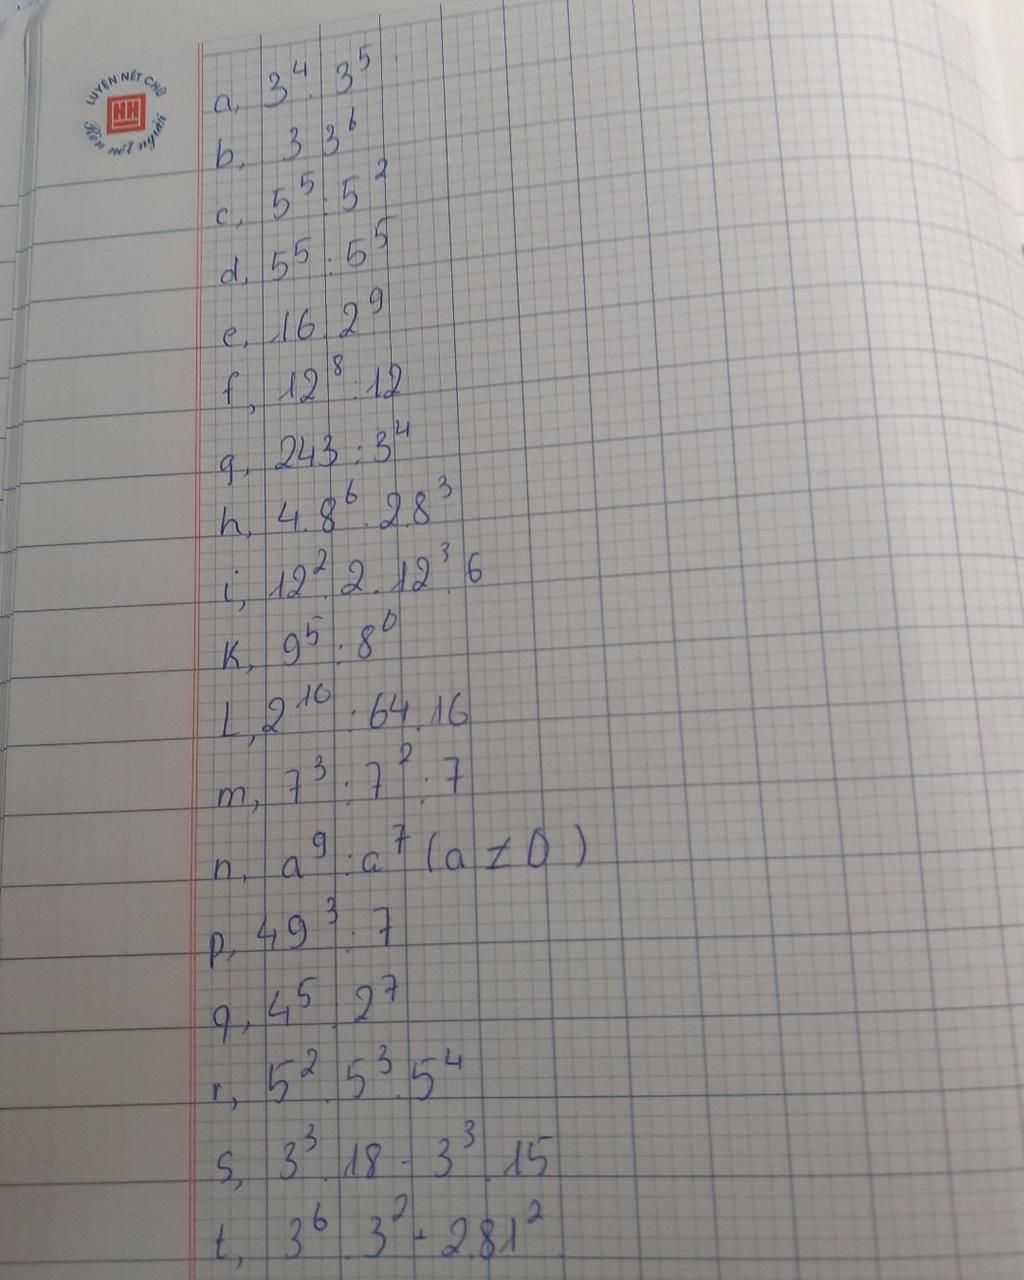 LUYỆN NÉT CHỮ
HH
Rèn nết người
a, 3⁴ . 3⁵
b, 3 . 3⁶
c, 5⁵ . 5²
d, 5⁵ : 5⁵
e, 16 . 2⁹
f, 12⁸ . 12
g, 243 : 3⁴
h, 4 . 8⁶ . 2 . 8³
i, 12² . 2 . 12³ . 6
K, 9⁵ : 8⁰
L, 2¹⁰ : 64 . 16
m, 7³ : 7² . 7
n, a⁹ : a⁷ (a ≠ 0)
p, 49³ : 7
q, 4⁵ . 2⁷
r, 5² . 5³ . 5⁴
s, 3³ . 18 - 3³ . 15
t, 3⁶ . 3² - 2 . 81²